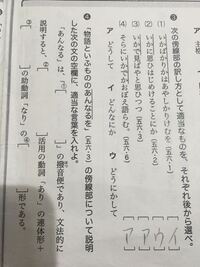 ③ 次の傍線部の訳し方として適当なものを、それぞれ後から選べ。
(1) いかばかりかはあやしかりけむを(五六・1)
(2) いかに思ひはじめけることにか(五六・2)
(3) いかで見ばやと思ひつつ(五六・3)
(4) そらにいかでかおぼえ語らむ。(五六・6)
ア どうして イ どんなにか ウ どうにかして
イ
ア
ウ
ア
④ 「物語といふもののあんなるを」(五六・3)の傍線部について説明
した次の文の空欄に、適当な言葉を入れよ。
「あんなる」は、①[ ]の撥音便であり、文法的に
説明すると、②[ ]活用の動詞「あり」の連体形+
③[ ]の助動詞「なり」の④[ ]形である。